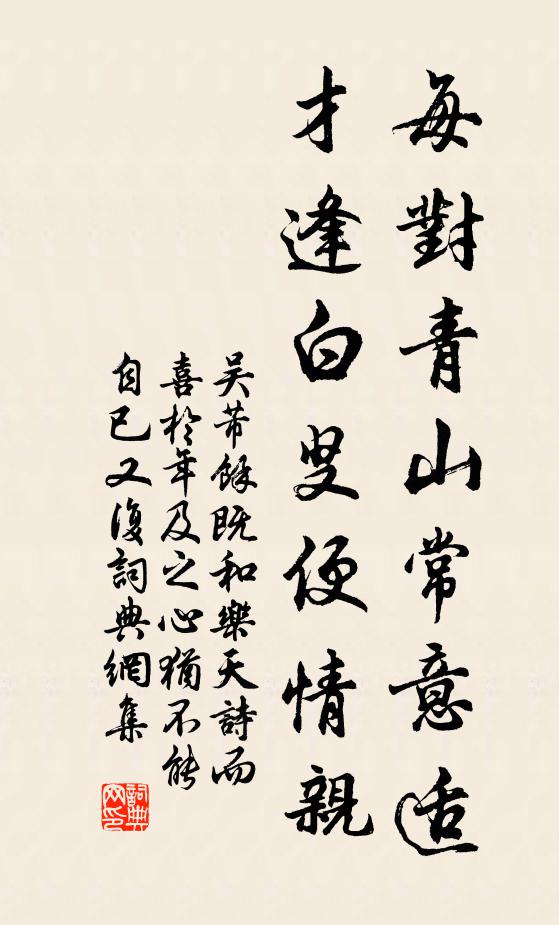 每對青山常意适
才逢白叟便情親
吴芾餘既和樂天詩而
喜於年及之心猶不能
自已又復詞典網集
詞典网印